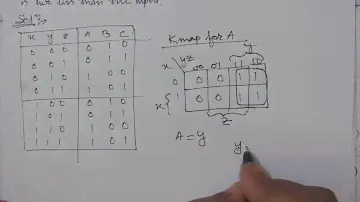 is not less than the input.
Sol":-
x y z A B C
0 0 0 0 1 0
0 0 1 0 1 1
0 1 0 1 0 0
0 1 1 1 0
1 0 0 0 1 0
1 0 1 0
1 1 0 1 0 0
1 1 1 1 0 1
K map for A
y
x yz 00 01 11 10
0 0 0 1 1
x { 1 0 0 1 1
z
A = y
y